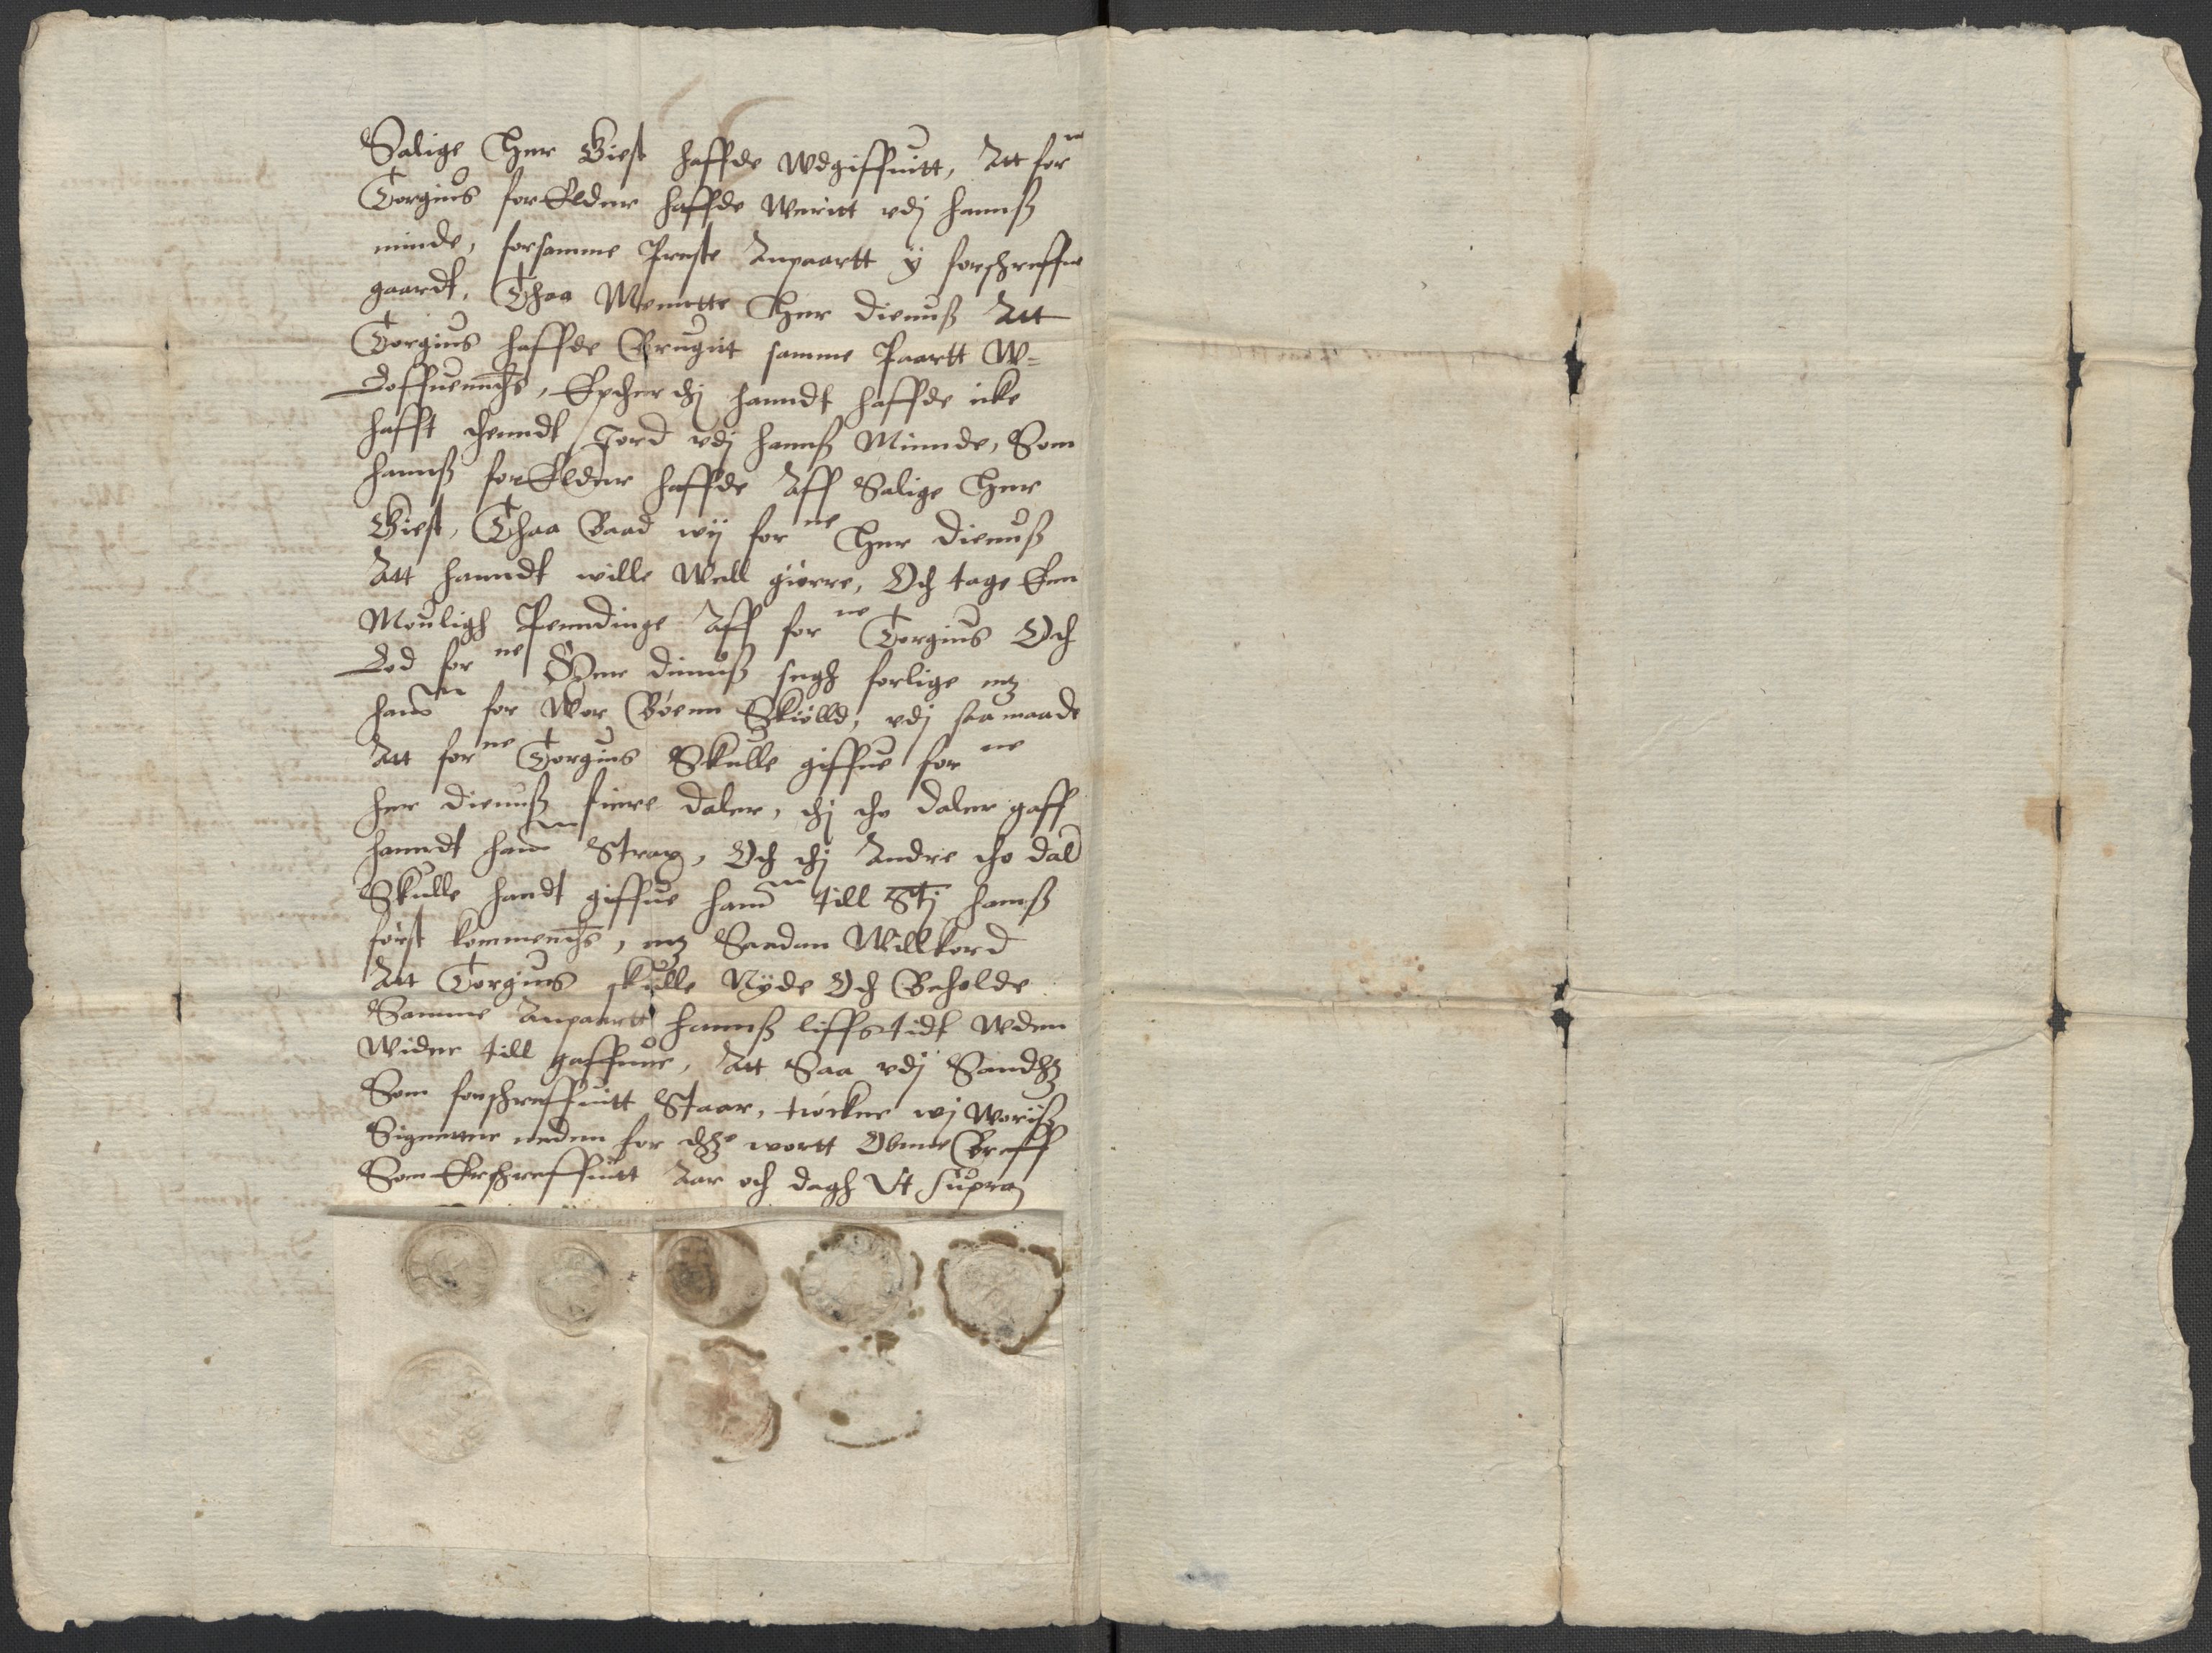 Salige Her Giest haffde Wdgiffuitt, Att forne
Torgius forElder haffde Weritt vdj hannß
minde, forsamme Preste Anpaartt ÿ forschreffne
gaardt, Thaa Menntte Her Dienuß Att
Torgius haffde Brugit samme Paartt W=
Loffuennths, Epther thj hanndt haffde icke
hafft thenndt Jord vdj hannß Minnde, Som
hannß forElder haffde Aff Salige Her
Giest, Thaa Baad wij forne Her Dienuß
Att hanndt wille Well giørre, Och tage Enn
Mouligh Penndinge Aff forne Torgius Och
Lod forne Her Dinuß segh forlige mz
hannm for Wor Bøenn Skiølld, vdj saa maade
Att forne Torgius Skulle giffue forne
her Dienuß fiere Daler, thj tho Daler gaff
hanndt hannm Strax, Och thj Andre tho Dal
Skulle handt giffue hannm till Stj hanß
først kommennths, mz Saadan Willkord
Att Torgius skulle Nÿde Och Beholde
Samme Anpaartt hannß liffs tidt Wden
Wider till gaffuer, Att Saa vdj Sandhz
Som forschreffuitt Staar, trøcker wj Woriß
Signetter neden for thze wortt Obne Breff
Som Erschreffuitt Aar och dagh Vt supra